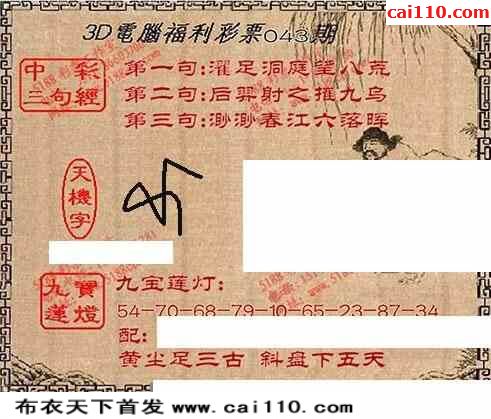 cai110.com
3D電腦福利彩票043期
中彩三句經
第一句:濯足洞庭望八荒
第二句:后羿射之摧九乌
第三句:渺渺春江六落晖
天機字
九寶蓮燈
九宝莲灯:
54-70-68-79-10-65-23-87-34
配:
黄尘足三古 斜盘下五天
布衣天下首发 www.cai110.com